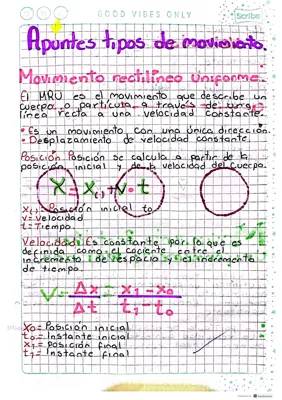 GOOD VIBES ONLY
Scribe
Apuntes tipos de movimiento.
Movimiento rectilíneo uniforme.
El MRU es el movimiento que describe un
cuerpo o partícula a través de una
línea recta a una velocidad constante.
• Es un movimiento con una única dirección.
• Desplazamiento de velocidad constante.
Posición: Posición se calcula a partir de la
posición inicial y de la velocidad del cuerpo.
X = X(,) + v · t
x(,) Posición inicial to
v= velocidad
t= Tiempo.
Velocidad: Es constante por lo que es
definida como el cociente entre el
incremento de espacio y el incremento
de tiempo.
V = Δx / Δt = x1 - x0 / t1 - t0
X0= Posición inicial
t0= Instante inicial
X1= posición final
t1= Instante final